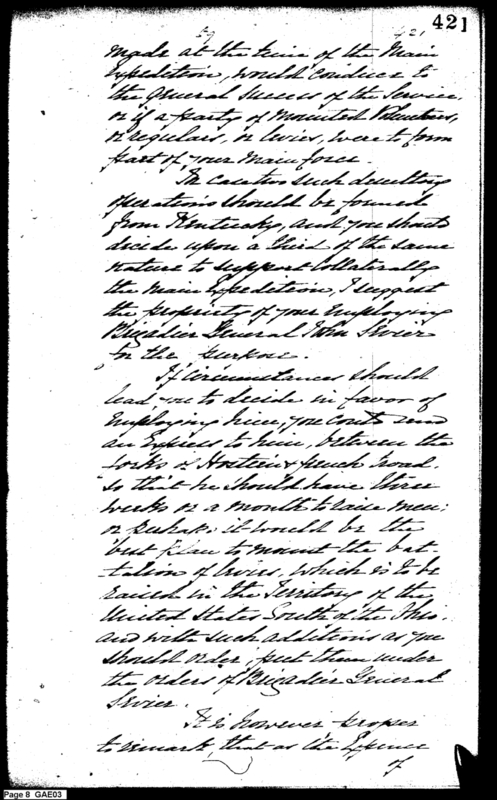 421
made at the time of the Main
Expedition, would conduce to
the general success of the Service,
or if a party of mounted Volunteers,
or regulars, or levies, were to form
part of your main force.
In case two such desultory
operations should be formed
from Kentucky, and you should
decide upon a third of the same
nature to support Collaterally
the Main Expedition, I suggest
the propriety of your employing
Brigadier General John Sevier
for the purpose.
If circumstances should
lead you to decide in favor of
employing him, you could send
an Express to him, between the
forks of Holstein & french broad.
So that he should have three
weeks or a month to raise men;
or perhaps it would be the
best plan to mount the bat-
talion of levies, which is to be
raised in the Territory of the
United States South of the Ohio,
and with such additions as you
should order, put them under
the orders of Brigadier General
Sevier.
It is however proper
to remark, that as the Expence
of
Page 8 GAE03